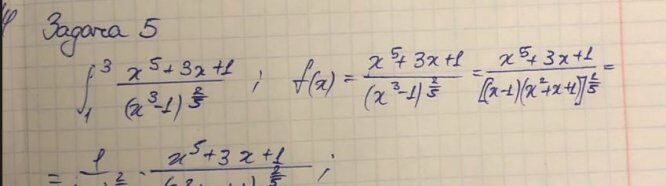 Задача 5
∫₁³ (x⁵+3x+1)/(x³-1)^(2/5) ; f(x) = (x⁵+3x+1)/(x³-1)^(2/5) = (x⁵+3x+1)/[(x-1)(x²+x+1)]^(2/5) =
= 1 · x⁵+3x+1 ;